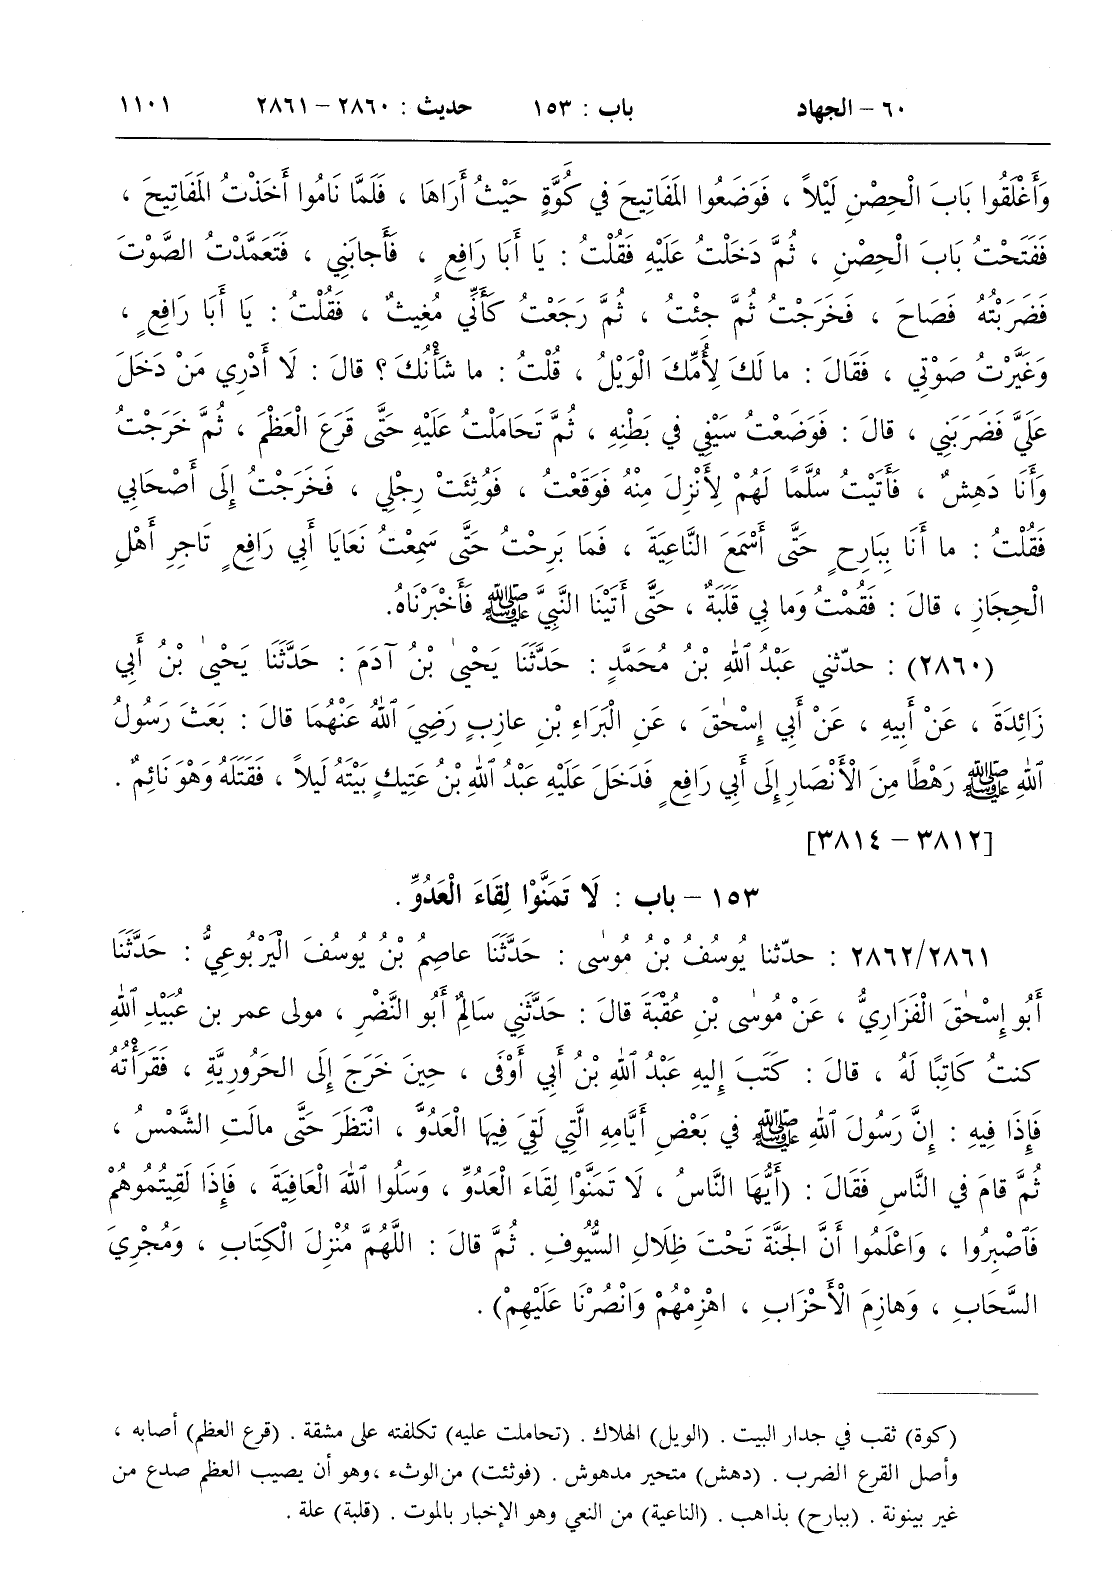 ٦٠ – الجهاد باب : ١٥٣ حديث : ٢٨٦٠ – ٢٨٦١ ١١٠١
وَأَغْلَقُوا بَابَ الْحِصْنِ لَيْلاً ، فَوَضَعُوا المَفَاتِيحَ في كُوَّةٍ حَيْثُ أَرَاهَا ، فَلَمَّا نَامُوا أَخَذْتُ المَفَاتِيحَ ،
فَفَتَحْتُ بَابَ الْحِصْنِ ، ثُمَّ دَخَلْتُ عَلَيْهِ فَقُلْتُ : يَا أَبَا رَافِعٍ ، فَأَجابَنِي ، فَتَعَمَّدْتُ الصَّوْتَ
فَضَرَبْتُهُ فَصَاحَ ، فَخَرَجْتُ ثُمَّ جِئْتُ ، ثُمَّ رَجَعْتُ كَأَنِّي مُغِيثٌ ، فَقُلْتُ : يَا أَبَا رَافِعٍ ،
وَغَيَّرْتُ صَوْتِي ، فَقَالَ : ما لَكَ لِأُمِّكَ الْوَيْلُ ، قُلْتُ : ما شَأْنُكَ ؟ قالَ : لَا أَدْرِي مَنْ دَخَلَ
عَلَيَّ فَضَرَبَنِي ، قالَ : فَوَضَعْتُ سَيْفِي في بَطْنِهِ ، ثُمَّ تَحَامَلْتُ عَلَيْهِ حَتَّى قَرَعَ الْعَظْمَ ، ثُمَّ خَرَجْتُ
وَأَنَا دَهِشٌ ، فَأَتَيْتُ سُلَّمًا لَهُمْ لِأَنْزِلَ مِنْهُ فَوَقَعْتُ ، فَوُثِئَتْ رِجْلِي ، فَخَرَجْتُ إِلَى أَصْحَابِي
فَقُلْتُ : ما أَنَا بِبَارِحٍ حَتَّى أَسْمَعَ النَّاعِيَةَ ، فَما بَرِحْتُ حَتَّى سَمِعْتُ نَعَايَا أَبِي رَافِعٍ تَاجِرِ أَهْلِ
الْحِجَازِ ، قالَ : فَقُمْتُ وَما بِي قَلَبَةٌ ، حَتَّى أَتَيْنَا النَّبِيَّ ﷺ فَأَخْبَرْنَاهُ.
(٢٨٦٠) : حدّثني عَبْدُ اللهِ بْنُ مُحَمَّدٍ : حَدَّثَنَا يَحْيىٰ بْنُ آدَمَ : حَدَّثَنَا يَحْيىٰ بْنُ أَبِي
زَائِدَةَ ، عَنْ أَبِيهِ ، عَنْ أَبِي إِسْحٰقَ ، عَنِ الْبَرَاءِ بْنِ عازِبٍ رَضِيَ اللهُ عَنْهُمَا قالَ : بَعَثَ رَسُولُ
اللهِ ﷺ رَهْطًا مِنَ الْأَنْصَارِ إِلَى أَبِي رَافِعٍ فَدَخَلَ عَلَيْهِ عَبْدُ اللهِ بْنُ عَتِيكٍ بَيْتَهُ لَيلاً ، فَقَتَلَهُ وَهْوَ نَائِمٌ .
[٣٨١٢ – ٣٨١٤]
١٥٣ – باب : لَا تَمَنَّوْا لِقَاءَ الْعَدُوِّ .
٢٨٦٢/٢٨٦١ : حدّثنا يُوسُفُ بْنُ مُوسٰى : حَدَّثَنَا عاصِمُ بْنُ يُوسُفَ الْيَرْبُوعِيُّ : حَدَّثَنَا
أَبُو إِسْحٰقَ الْفَزَارِيُّ ، عَنْ مُوسٰى بْنِ عُقْبَةَ قالَ : حَدَّثَنِي سَالِمٌ أَبُو النَّضْرِ ، مولى عمر بن عُبَيْدِ اللهِ
كنتُ كَاتِبًا لَهُ ، قالَ : كَتَبَ إِليهِ عَبْدُ اللهِ بْنُ أَبِي أَوْفَى ، حِينَ خَرَجَ إِلَى الحَرُورِيَّةِ ، فَقَرَأْتُهُ
فَإِذَا فِيهِ : إِنَّ رَسُولَ اللهِ ﷺ في بَعْضِ أَيَّامِهِ الَّتِي لَقِيَ فِيهَا الْعَدُوَّ ، انْتَظَرَ حَتَّى مالَتِ الشَّمْسُ ،
ثُمَّ قامَ في النَّاسِ فَقَالَ : (أَيُّهَا النَّاسُ ، لَا تَمَنَّوْا لِقَاءَ الْعَدُوِّ ، وَسَلُوا اللهَ الْعَافِيَةَ ، فَإِذَا لَقِيتُمُوهُمْ
فَاصْبِرُوا ، وَاعْلَمُوا أَنَّ الجَنَّةَ تَحْتَ ظِلَالِ السُّيُوفِ . ثُمَّ قالَ : اللَّهُمَّ مُنْزِلَ الْكِتَابِ ، وَمُجْرِيَ
السَّحَابِ ، وَهازِمَ الْأَحْزَابِ ، اهْزِمْهُمْ وَانْصُرْنَا عَلَيْهِمْ) .
(كوة) ثقب في جدار البيت . (الويل) الهلاك . (تحاملت عليه) تكلفته على مشقة . (قرع العظم) أصابه ،
وأصل القرع الضرب . (دهش) متحير مدهوش . (فوثئت) من الوثء ، وهو أن يصيب العظم صدع من
غير بينونة . (ببارح) بذاهب . (الناعية) من النعي وهو الإخبار بالموت . (قلبة) علة .